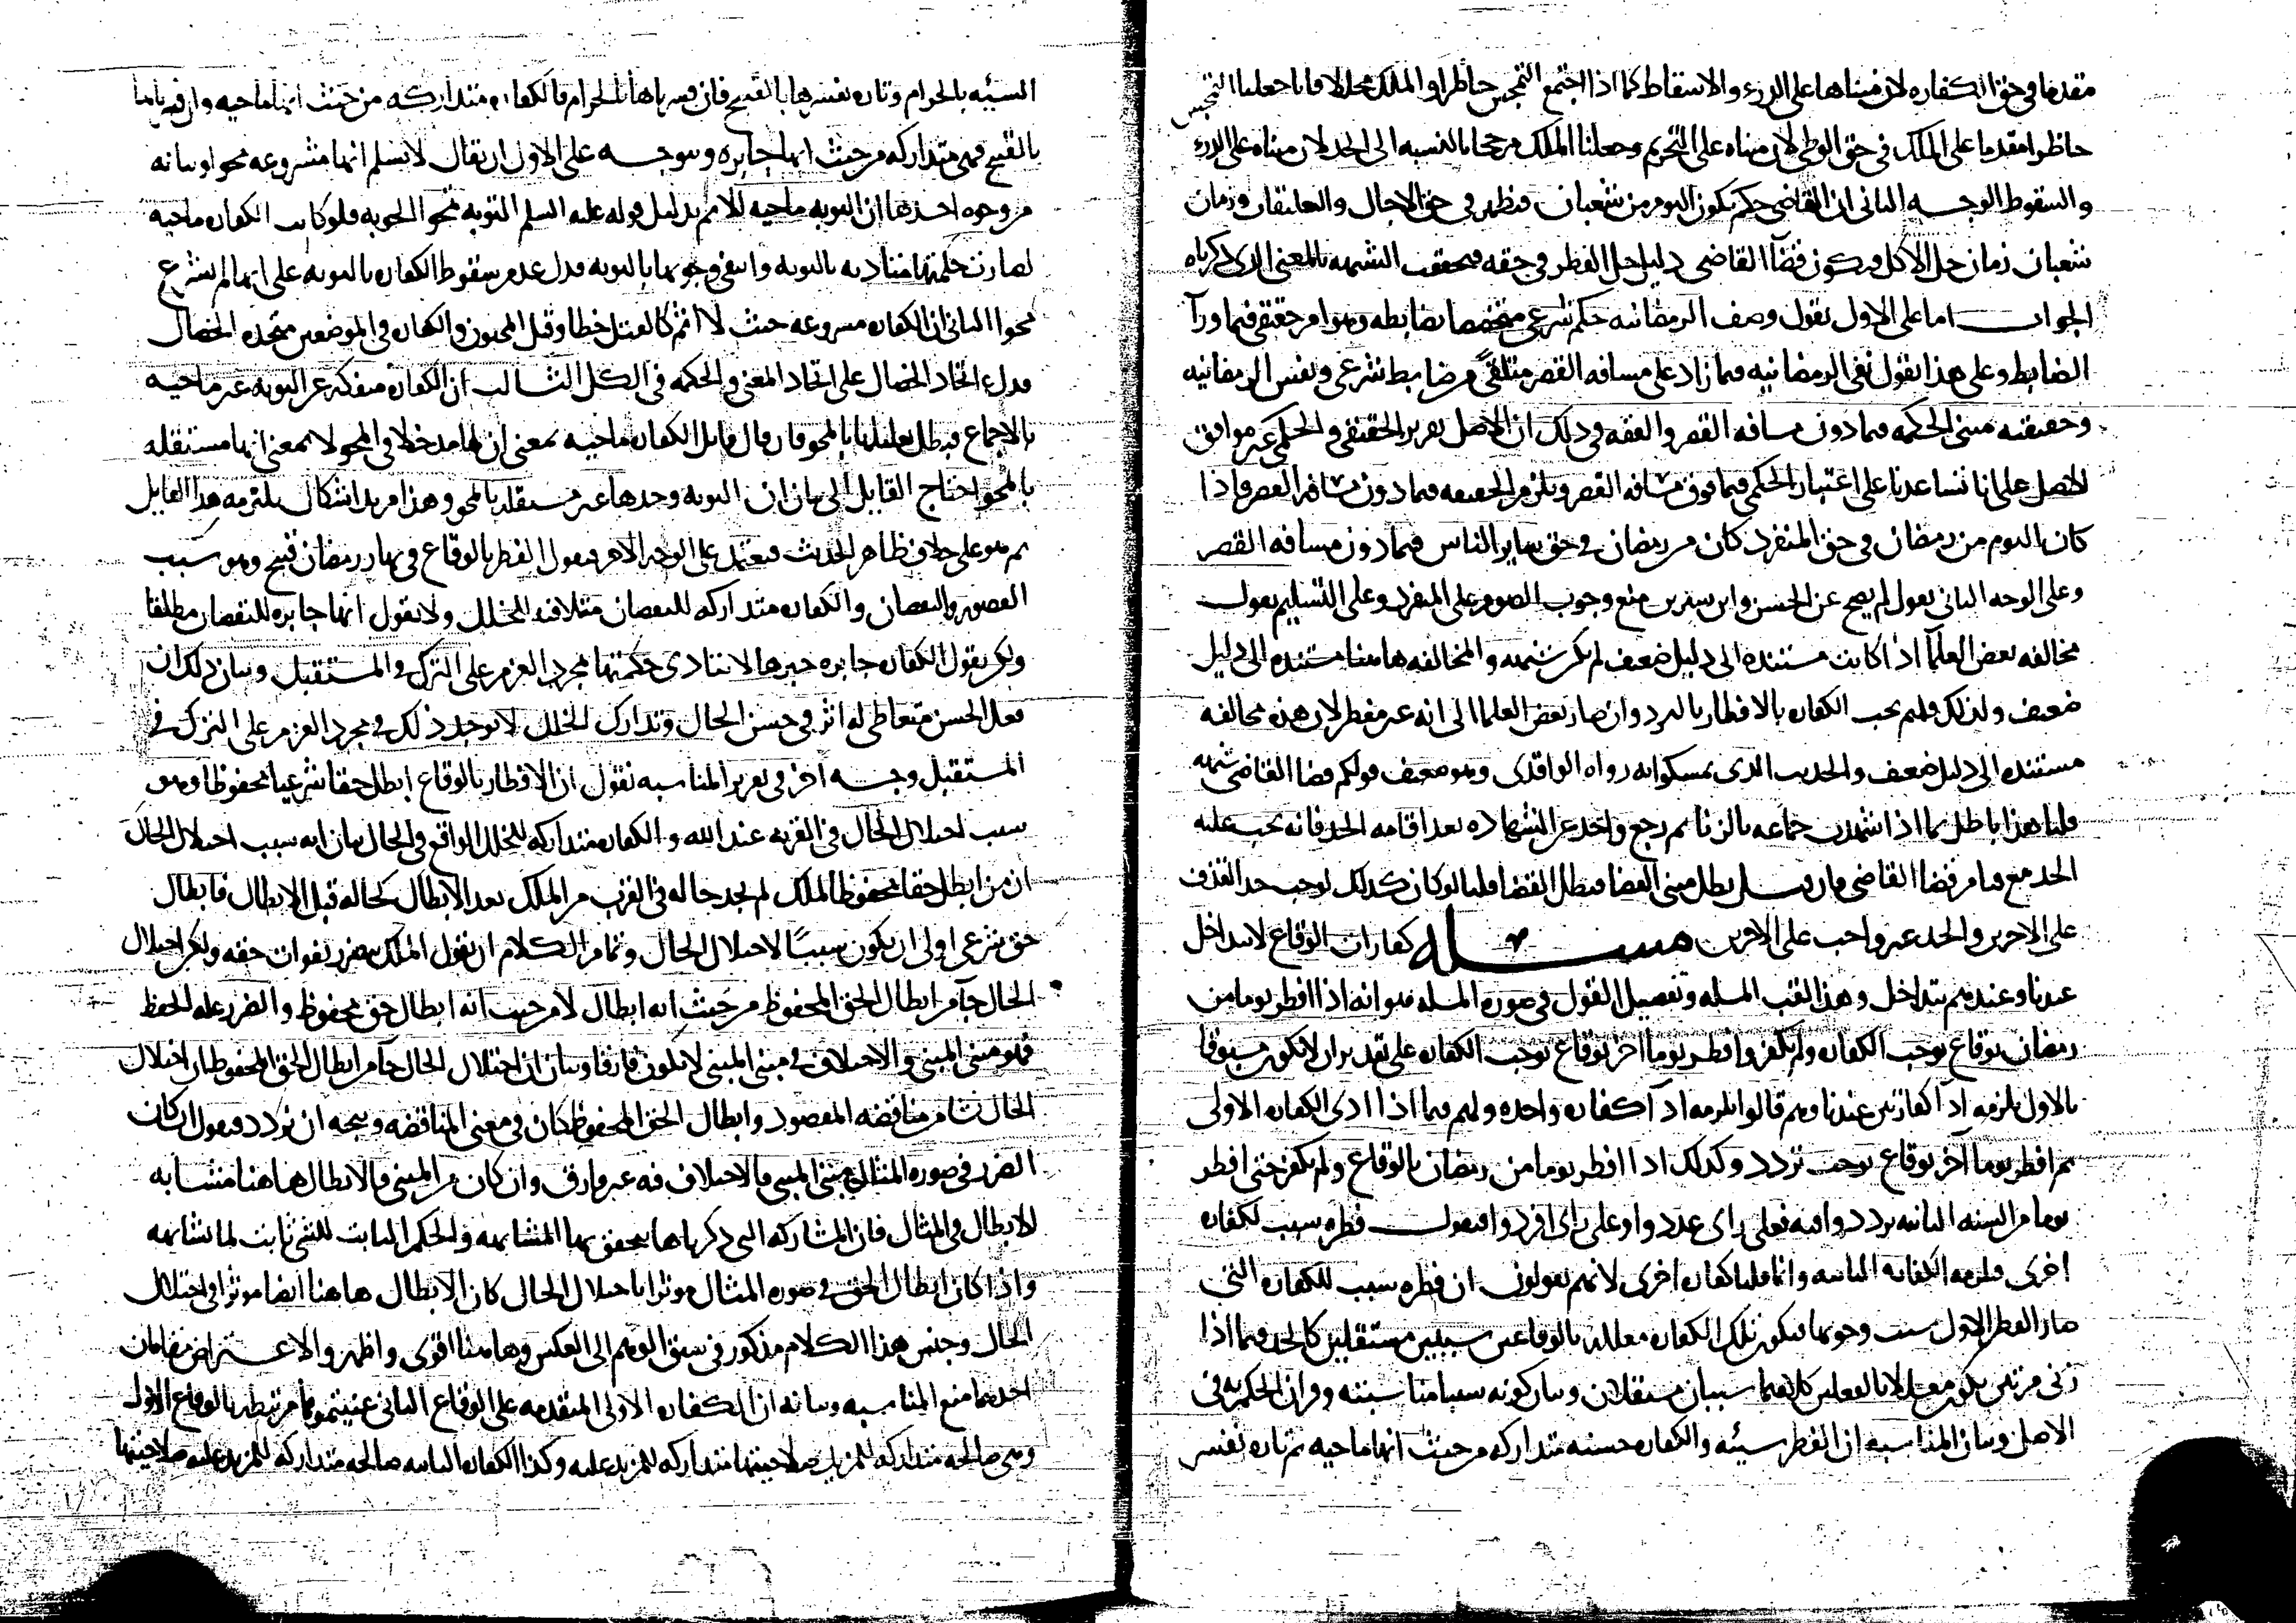 مقدما في حق الكفاره لان مبناها على الدرء والاسقاط كما اذا اجتمع التمجس حاظرا والملك محللا فانا جعلنا التمجس
حاظرا مقدما على الملك في حق الوطي لان مبناه على التحريم وجعلنا الملك مرجحا بالنسبه الى الحد لان مبناه على الدرء
والسقوط الوجه الثاني ان القاضي حكم بكون اليوم من شعبان فيظهر في حق الاجال والتعليقات وزمان
شعبان زمان حل الاكل فيكون قضآ القاضي دليل حل الفطر في حقه فتحققت الشبهه بالمعنى الذي ذكرناه
الجواب اما على الاول نقول وصف الرمضانيه حكم شرعي بضابطه وهو امر حقيقي فيما ورآ
الضابط وعلى هذا نقول نفي الرمضانيه فيما زاد على مسافه القصر متلقى من ضابط شرعي ونفس الرمضانيه
وحقيقته مبنى الحكمه فيما دون مسافه القصر والفقه في ذلك ان الاصل تقرير الحقيقي والحكمي غير موافق
للاصل على انا تساعدنا على اعتبار الحكمي فيما فوق مسافه القصر ونلزم الحقيقه فيما دون مسافه القصر فاذا
كان اليوم من رمضان في حق المنفرد كان من رمضان في حق ساير الناس فيما دون مسافه القصر
وعلى الوجه الثاني نقول لم يصح عن الحسن وابن سيرين منع وجوب الصوم على المنفرد وعلى التسليم نقول
مخالفه بعض العلمآ اذا كانت مستنده الى دليل ضعيف لم تكن شبهه والمخالفه هاهنا مستنده الى دليل
ضعيف ولذلك قلتم تجب الكفاره بالافطار بالبرد وان صار بعض العلما الى انه غير مفطر لان هذه مخالفه
مستنده الى دليل ضعيف والحديث الذي تمسكوا به رواه الواقدي وهو ضعيف قولكم قضا القاضي شبهه
قلنا هذا باطل بما اذا شهدت جماعه بالزنا ثم رجع واحد عن الشهاده بعد اقامه الحد فانه يجب عليه
الحد مع قيام قضا القاضي فان قيل بطل مبنى القضا فبطل القضا قلنا لو كان كذلك لوجب حد القذف
على الاخرين والحد غير واجب على الاخرين مسله كفارات الوقاع لا تتداخل
عندنا وعندهم تتداخل وهذا لقب المسله وتفصيل القول في صوره المسله هو انه اذا افطر يوما من
رمضان بوقاع يوجب الكفاره ولم يكفر وافطر يوما اخر بوقاع يوجب الكفاره على تقدير ان لا يكون مسبوقا
بالاول يلزمه ادآ كفارتين عندنا وهم قالوا يلزمه ادآ كفاره واحده ولهم فيما اذا ادى الكفاره الاولى
ثم افطر يوما آخر بوقاع يوجب تردد وكذلك اذا افطر يوما من رمضان بالوقاع ولم يكفر حتى افطر
يوما من السنه الثانيه ترددوا فيه فعلى راى عددوا وعلى راى افردوا فنقول فطره سبب لكفاره
اخرى فلزمه الكفاره الثانيه وانما قلنا كفاره اخرى لانهم يقولون ان فطره سبب للكفاره التي
صار الفطر الاول سبب وجوبها فتكون تلك الكفاره معلله بالوقاعين سببين مستقلين كالحد فيما اذا
زنى مرتين يكون معللا بالفعلين كلاهما سببان مستقلان وبيان كونه سببا مناسبته وقران الحكم به في
الاصل وبيان المناسبه ان الفطر سيئه والكفاره حسنه متداركه من حيث انها ماحيه ثم تاره نفسر
السيئه بالحرام وتاره نفسرها بالقبيح فان فسرناها بالحرام فالكفاره متداركه من حيث انها ماحيه وان فسرناها
بالقبيح فهي متداركه من حيث انها جابره ويتوجه على الاول ان يقال لا نسلم انها مشروعه محوا وبيانه
من وجوه احدها ان التوبه ماحيه للاثم بدليل قوله عليه السلم التوبه تمحو الحوبه فلو كانت الكفاره ماحيه
لصارت حكمتها متاديه بالتوبه وانتفى وجوبها بالتوبه فدل عدم سقوط الكفاره بالتوبه على انها لم تشرع
محوا الثاني ان الكفاره مشروعه حيث لا اثم كالقتل خطا وقتل المجنون والكفاره في الموضعين متحده الخصال
فدل اتحاد الخصال على اتحاد المعنى والحكمه في الكل الثالث ان الكفاره منفكه عن التوبه غير ماحيه
بالاجماع فبطل تعليلها بالمحو فان قال قايل الكفاره ماحيه بمعنى ان لها مدخلا في المحو لا بمعنى انها مستقله
بالمحو احتاج القايل الى بيان ان التوبه وحدها غير مستقله بالمحو وهذا مزيد اشكال يلتزمه هذا القايل
ثم هو على خلاف ظاهر الحديث فنعتمد على الوجه الاخر فنقول الفطر بالوقاع في نهار رمضان قبيح وهو سبب
القصور والنقصان والكفاره متداركه للنقصان متلافيه للخلل ولا نقول انها جابره للنقصان مطلقا
ولكن نقول الكفاره جابره جبرها لا تتادى حكمتها بمجرد العزم على الترك في المستقبل وبيان ذلك ان
فعل الحسن متعاطى له اثر في حسن الحال وتدارك الخلل لا يوجد ذلك في مجرد العزم على الترك في
المستقبل وجه آخر في تقرير المناسبه نقول ان الافطار بالوقاع ابطل حقا شرعيا محفوظا وهو
سبب اختلال الحال في القربه عند الله والكفاره متداركه للخلل الواقع في الحال بيان انه سبب اختلال الحال
ان من ابطل حقا محفوظا لملك لم يجد حاله في القرب من الملك بعد الابطال كحاله قبل الابطال فابطال
حق شرعي اولى ان يكون سببًا لاختلال الحال وتمام الكلام ان نقول الملك يتضرر بفوات حقه ولكن اختلال
الحال جآ من ابطال الحق المحفوظ من حيث انه ابطال لا من حيث انه ابطال حق محفوظ والضرر عله الحفظ
فهو مبنى المبنى والاختلاف في مبنى المبنى لا يكون فارقا وبيان ان اختلال الحال جآ من ابطال الحق المحفوظ ان اختلال
الحال نشا من مناقضه المقصود وابطال الحق المحفوظ كان في معنى المناقضه ويتجه ان نردد فنقول ان كان
الضرر في صوره المثال مبنى المبنى فالاختلاف فيه غير فارق وان كان من المبنى فالابطال هاهنا مشابه
للابطال في المثال فان المشاركه التي ذكرناها يتحقق بها المشابهه والحكم الثابت للشي ثابت لما يشابهه
واذا كان ابطال الحق في صوره المثال موثرا باختلال الحال كان الابطال هاهنا ايضا موثرا في اختلال
الحال وجنس هذا الكلام مذكور في سبق الوهم الى العكس وهاهنا اقوى واظهر والاعتراض مقامان
احدهما منع المناسبه وبيانه ان الكفاره الاولى المتقدمه على الوقاع الثاني مرتبطه بالوقاع الاول
وهي صالحه متداركه للمزيد صلاحيتها متداركه للمزيد عليه وكذا الكفاره الثانيه صالحه متداركه للمزيد عليه صلاحيتها